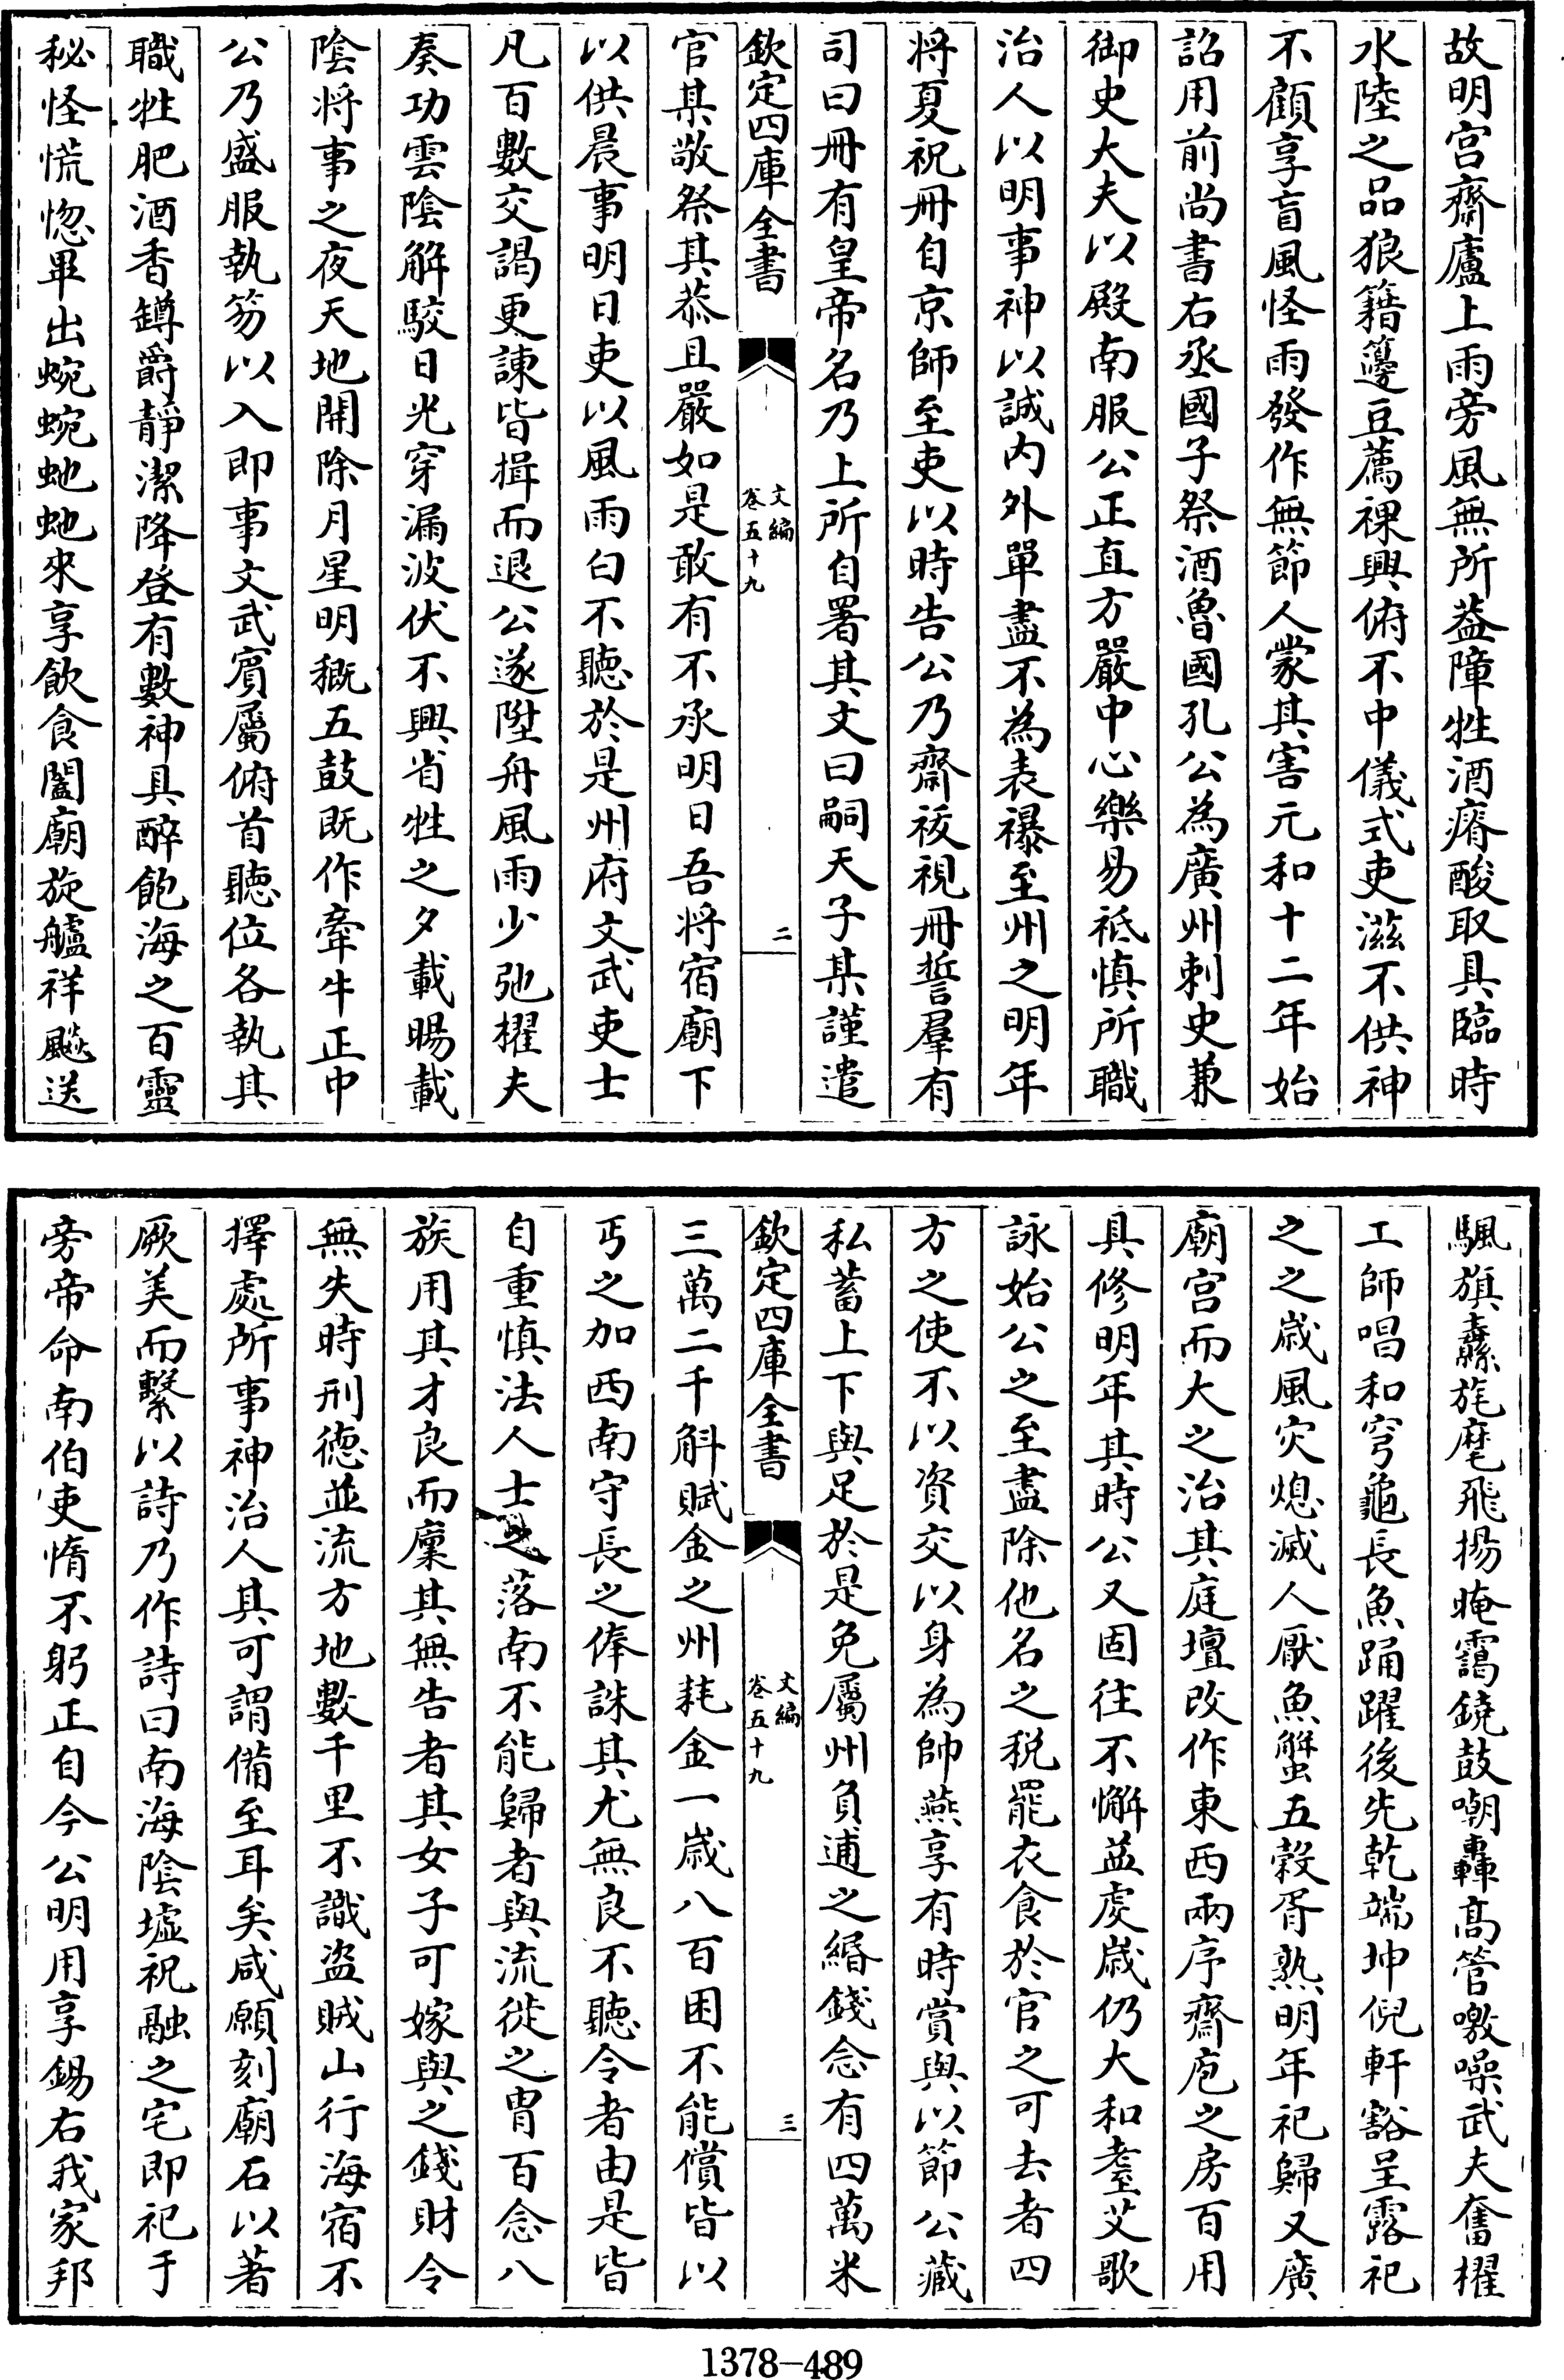 故明宫齋廬上雨旁風無所葢障牲酒瘠酸取具臨時
水陸之品狼籍籩豆薦祼興俯不中儀式吏滋不供神
不顧享盲風怪雨發作無節人蒙其害元和十二年始
詔用前尚書右丞國子祭酒魯國孔公為廣州刺史兼
御史大夫以殿南服公正直方嚴中心樂易祗慎所職
治人以明事神以誠内外單盡不為表襮至州之明年
将夏祝冊自京師至吏以時告公乃齋祓視冊誓羣有
司曰冊有皇帝名乃上所自署其文曰嗣天子某謹遣
欽定四庫全書
文編
卷五十九
二
官某敬祭其恭且嚴如是敢有不承明日吾将宿廟下
以供晨事明日吏以風雨白不聽於是州府文武吏士
凡百數交謁更諫皆揖而退公遂陞舟風雨少弛櫂夫
奏功雲陰解駮日光穿漏波伏不興省牲之夕載暘載
陰将事之夜天地開除月星明穊五鼓既作牽牛正中
公乃盛服執笏以入即事文武賔屬俯首聽位各執其
職牲肥酒香罇爵靜潔降登有數神具醉飽海之百靈
秘怪慌惚畢出蜿蜿虵虵來享飲食闔廟旋艫祥飈送
颿旗纛旄麾飛揚晻靄鐃鼓嘲轟高管噭噪武夫奮櫂
工師唱和穹龜長魚踊躍後先乾端坤倪軒豁呈露祀
之之歲風灾熄滅人厭魚蟹五穀胥熟明年祀歸又廣
廟宫而大之治其庭壇改作東西兩序齋庖之房百用
具修明年其時公又固往不懈益虔歲仍大和耋艾歌
詠始公之至盡除他名之税罷衣食於官之可去者四
方之使不以資交以身為帥燕享有時賞與以節公藏
私蓄上下與足於是免屬州負逋之緡錢念有四萬米
欽定四庫全書
文編
卷五十九
三
三萬二千斛賦金之州耗金一歲八百困不能償皆以
丐之加西南守長之俸誅其尤無良不聽令者由是皆
自重慎法人士之落南不能歸者與流徙之胄百念八
族用其才良而廩其無告者其女子可嫁與之錢財令
無失時刑徳並流方地數千里不識盗賊山行海宿不
擇處所事神治人其可謂備至耳矣咸願刻廟石以著
厥美而繫以詩乃作詩曰南海陰墟祝融之宅即祀于
旁帝命南伯吏惰不躬正自今公明用享錫右我家邦
1378—489